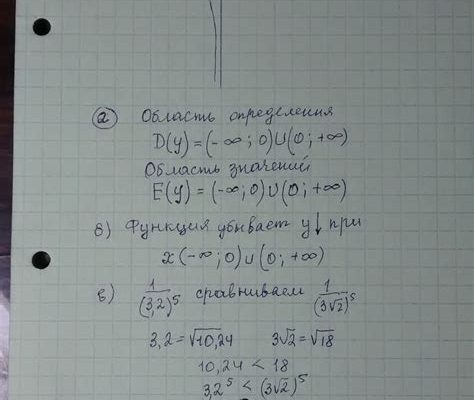 а) Область определения
D(y) = (-∞; 0) ∪ (0; +∞)
Область значений
E(y) = (-∞; 0) ∪ (0; +∞)
б) Функция убывает y↓ при
x (-∞; 0) ∪ (0; +∞)
в) 1/(3,2)⁵ сравниваем 1/(3√2)⁵
3,2 = √10,24 3√2 = √18
10,24 < 18
3,2⁵ < (3√2)⁵